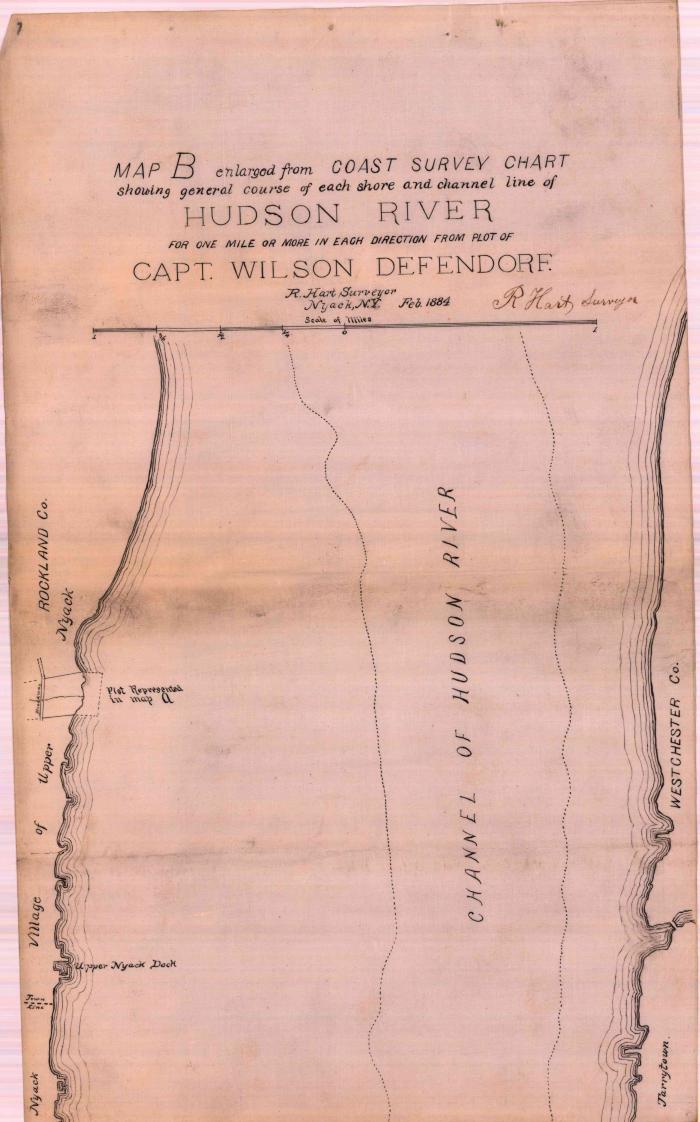 MAP B enlarged from COAST SURVEY CHART
showing general course of each shore and channel line of
HUDSON RIVER
FOR ONE MILE OR MORE IN EACH DIRECTION FROM PLOT OF
CAPT. WILSON DEFENDORF.
R. Hart, Surveyor
Nyack, N.Y. Feb. 1884
R Hart, Surveyor
Scale of Miles
1 ½ ¼ 0 1
ROCKLAND Co.
Nyack
Upper
of
Village
Plot Represented
in map A
CHANNEL OF HUDSON RIVER
WESTCHESTER Co.
Upper Nyack Dock
Town
Line
Nyack
Tarrytown.